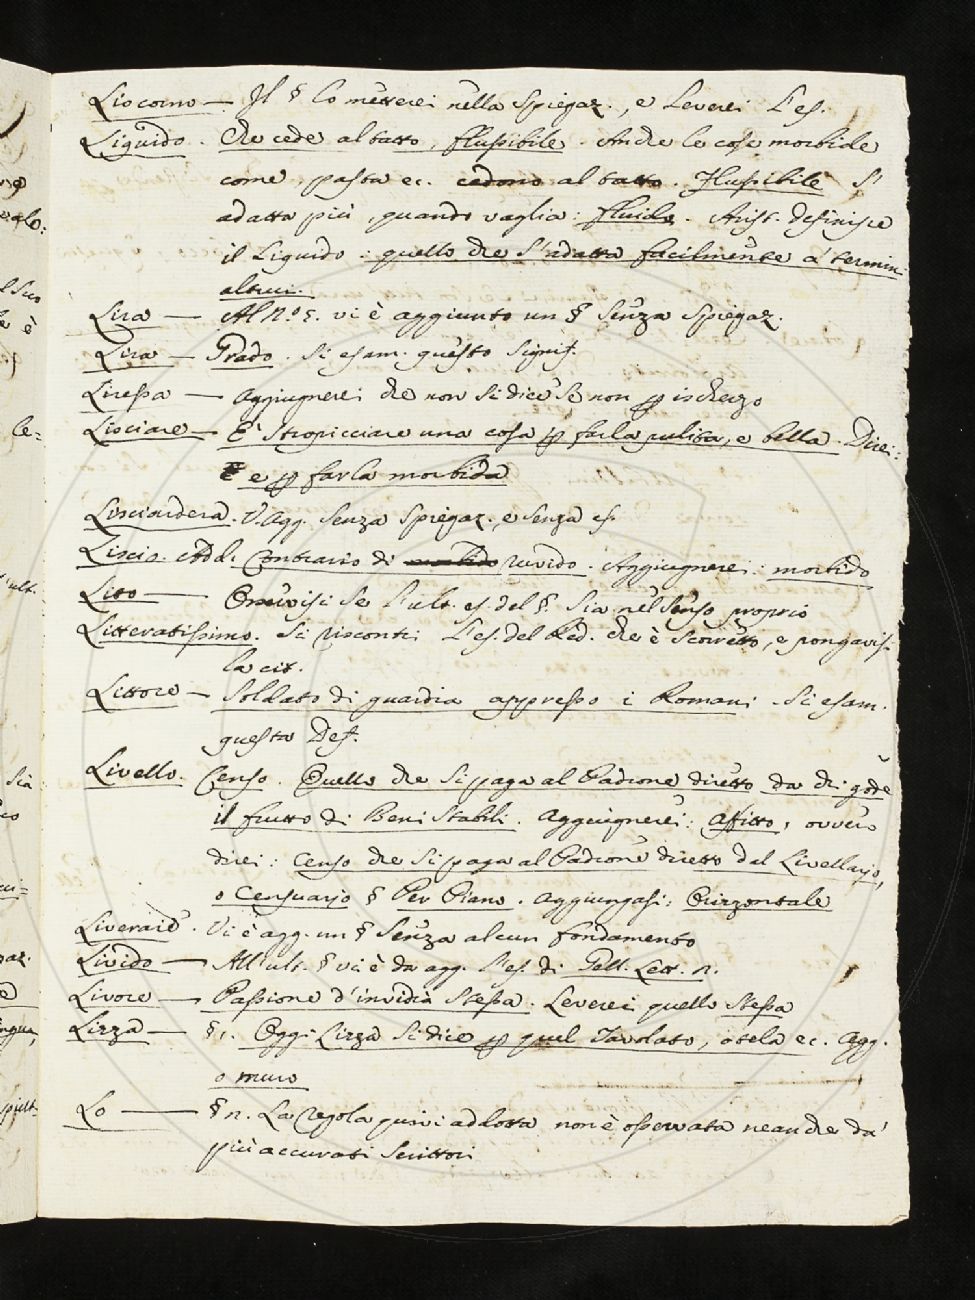 Liocorno — Il § lo metterei nella Spiegaz., e Leverei L'es.
Liquido. Che cede al tatto, flussibile. Anche le cose morbide
come pasta ec. cedono al tatto. Flussibile s'
adatta più, quando vaglia: fluido. Arist. definisce
il Liquido: quello che s'adatta facilmente a termini
altrui.
Lira — Al N.° 5. vi è aggiunto un § Senza Spiegaz.
Lira — Grado. Si esam. questo signif.
Liressa — Aggiugnerei che non si dice se non p ischerzo
Lisciare — E' Stropicciare una cosa p farla pulita, e bella. Direi:
e p farla morbida
Lisciardera. V. Agg. Senza Spiegaz., e Senza es.
Liscio. Add. Contrario di morbido ruvido. Aggiugnerei: morbido
Lito — Osservisi Se l'ult. es. del §. Sia nel Senso proprio
Litteratissimo. Si riscontri L'es. del Red. che è scorretto, e pongavisi
la cit.
Littore — Soldato di guardia appresso i Romani. Si esam.
questa Def.
Livello. Censo. Quello che si paga al Padrone diretto da chi gode
il frutto di Beni Stabili. Aggiugnerei: Affitto, ovvero
direi: Censo che si paga al Padrone diretto dal Livellario,
o Censuario § Per Piano. Aggiungasi: Orizzontale
Vi è agg. un § Senza alcun fondamento
Livido — All'ult. § vi è da agg. l'es. di Gell. Lett. n.
Livore — Passione d'invidia Stessa. Leverei quello Stessa
Lizza — § 1. Oggi Lizza si dice p quel Tavolato, o tela ec. Agg.
o muro
Lo — § n. La Regola quivi addotta non è osservata neanche da'
più accurati Scrittori